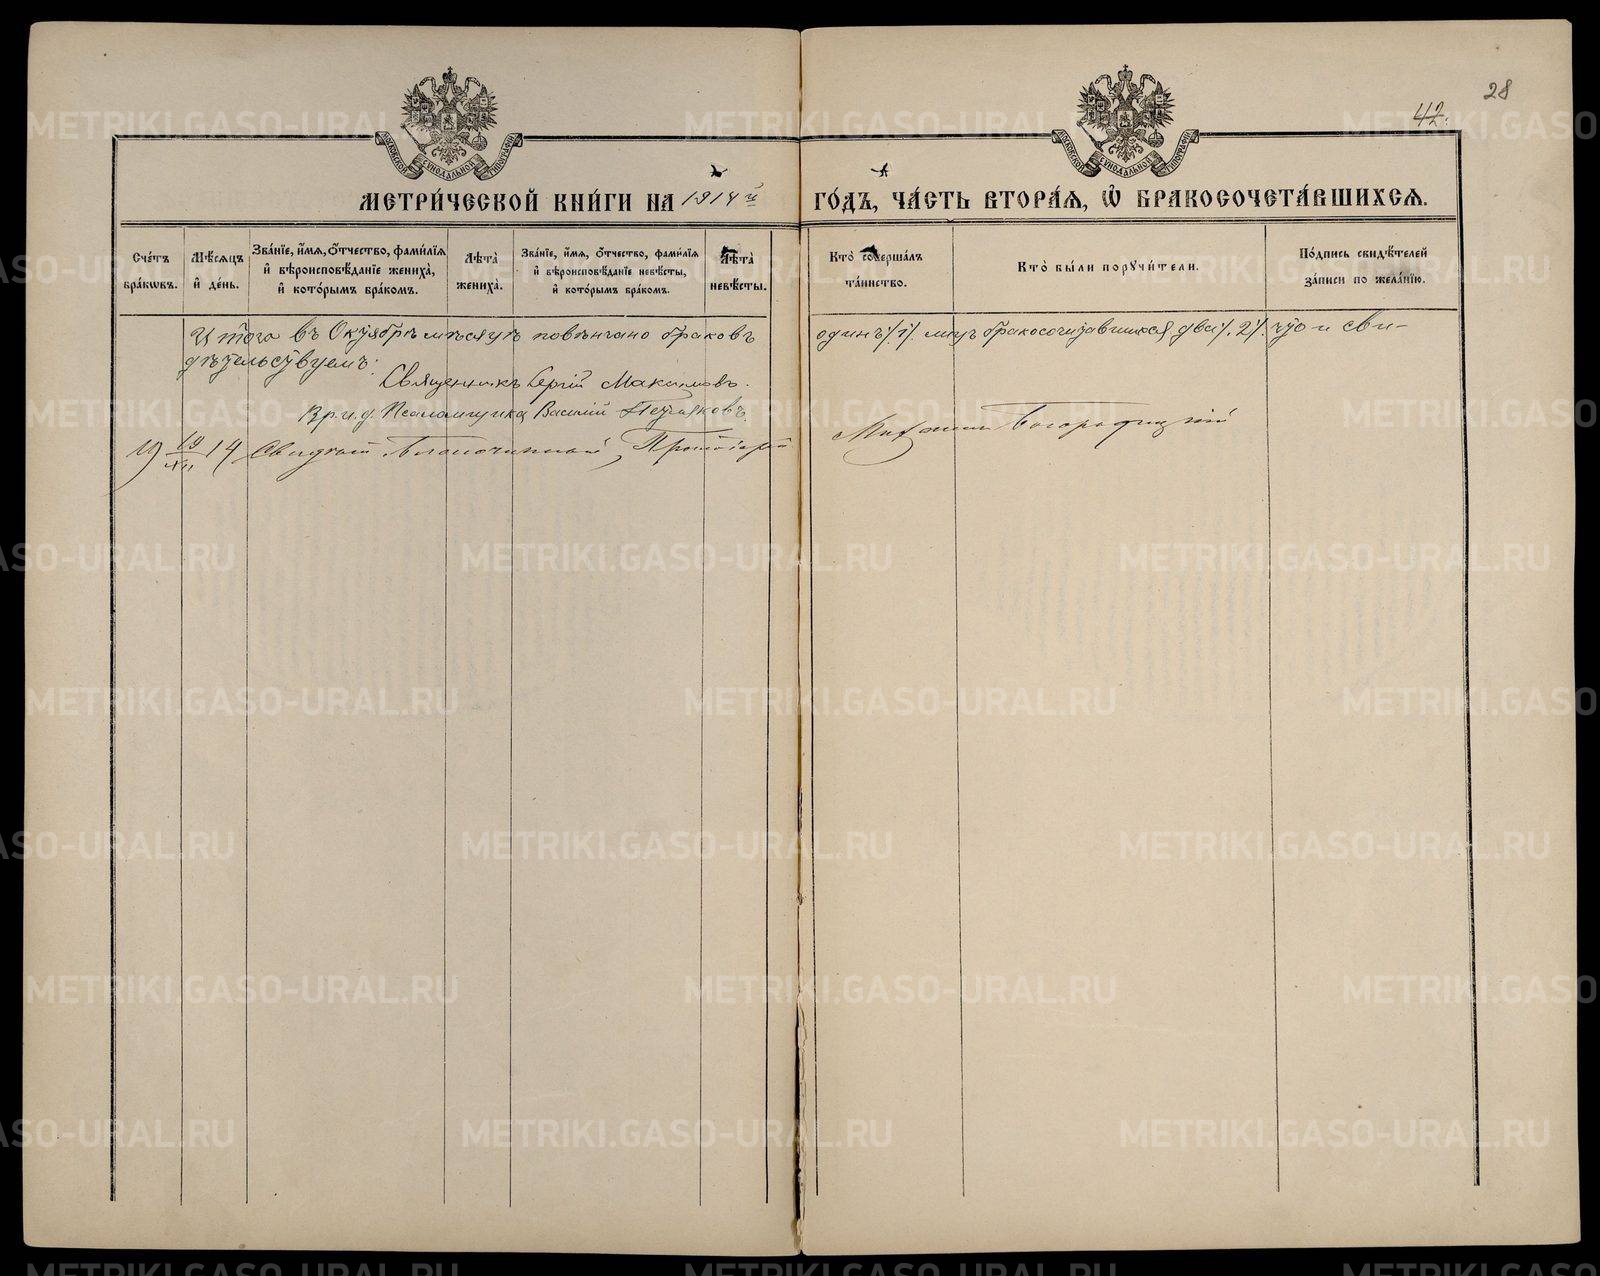 28
42.
МОСКОВСКОЙ СУНОДАЛЬНОЙ ТИПОГРАФІИ
МОСКОВСКОЙ СУНОДАЛЬНОЙ ТИПОГРАФІИ
МЕТРИ́ЧЕСКОЙ КНИ́ГИ НА 1914 й ГО́ДЪ, ЧА́СТЬ ВТОРА́Ѧ, Ѡ҆ БРАКОСОЧЕТА́ВШИХСѦ.
Сче́тъ бра́ковъ.
Мѣ́сѧцъ и҆ де́нь.
Зва́нїе, и҆́мѧ, ѻ҆́тчество, фами́лїѧ и҆ вѣроисповѣ́данїе жениха̀, и҆ кото́рымъ бра́комъ.
Лѣ̀та̀ жениха̀.
Зва́нїе, и҆́мѧ, ѻ҆́тчество, фами́лїѧ и҆ вѣроисповѣ́данїе невѣ́сты, и҆ кото́рымъ бра́комъ.
Лѣ̀та̀ невѣ́сты.
Кто̀ соверша́лъ та́инство.
Кто̀ бы́ли порꙋчи́тели.
По́дпись свидѣ́телей за́писи по жела́нїю.
Итого въ Октябрѣ мѣсяцѣ повѣнчано браковъ один /1/ лицъ бракосочетавшихся два /2/. что и сви-
дѣтельствуемъ:
Священникъ Сергій Максимовъ.
Вр. и. д. Псаломщика Василій
19 19/XII 14 Благочинный Протоіерей Михаилъ Богородицкій
METRIKI.GASO-URAL.RU